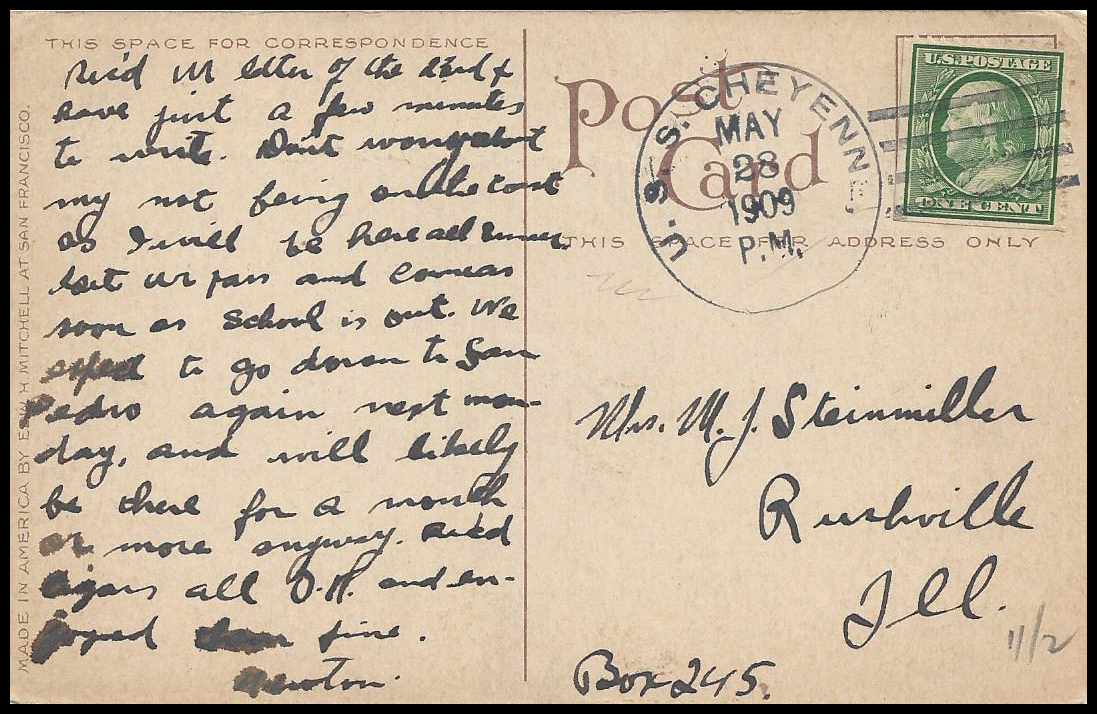 THIS SPACE FOR CORRESPONDENCE
Rec'd Ur letter of the 22nd &
have just a few minutes
to write. Don't worry about
my not being on the coast
as I will be here all summer.
Get ur pass and come as
soon as School is out. We
expect to go down to San
Pedro again next mon-
day, and will likely
be there for a month
or more anyway. Rec'd
cigars all O.K. and en-
joyed them fine.
Newton.
MADE IN AMERICA BY EDW H MITCHELL AT SAN FRANCISCO.
Post
Card
THIS SPACE FOR ADDRESS ONLY
U.S.S. CHEYENNE,
MAY
28
1909
P.M.
U.S. POSTAGE
ONE CENT
Mrs. M. J. Steinmiller
Rushville
Ill.
Box 245.
11/2